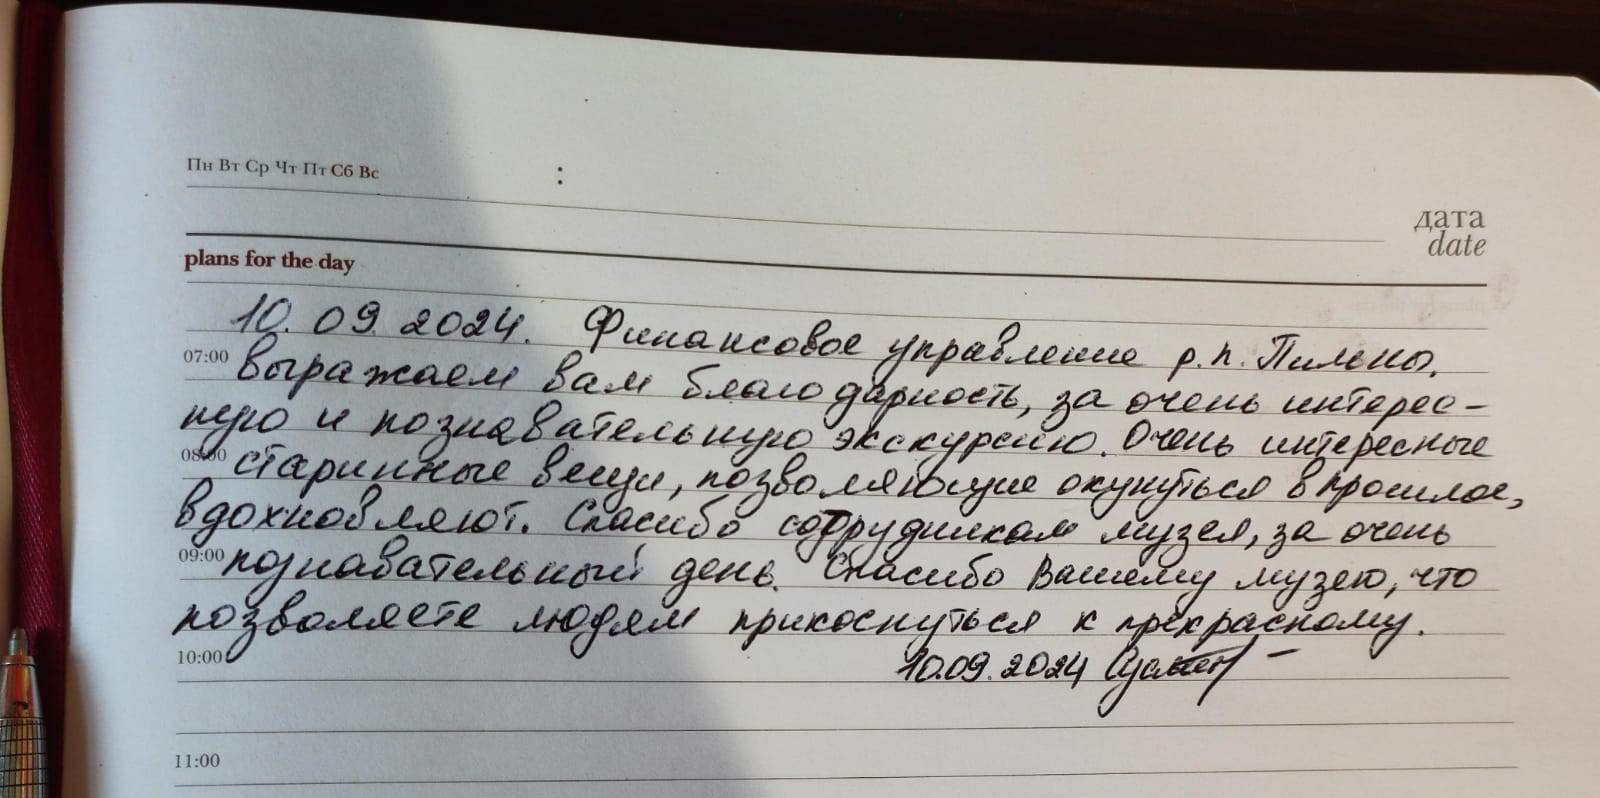 Пн Вт Ср Чт Пт Сб Вс
:
дата
date
plans for the day
10.09.2024. Финансовое управление р.п. Пильны.
07:00
выражаем вам благодарность, за очень интерес-
ную и познавательную экскурсию. Очень интересные
08:00
старинные вещи, позволяющие окунуться в прошлое,
вдохновляют. Спасибо сотрудникам музея, за очень
09:00
познавательный день. Спасибо Вашему музею, что
позволяете людям прикоснуться к прекрасному.
10:00
10.09.2024
11:00